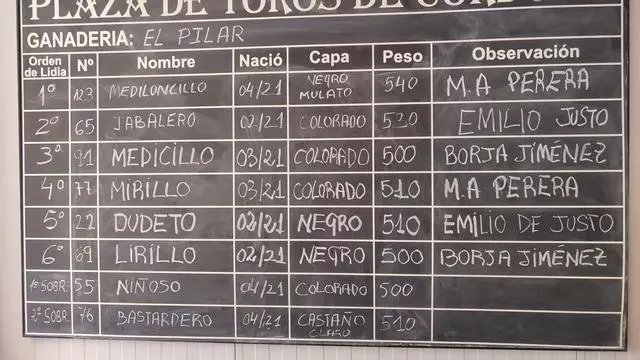 PLAZA DE TOROS DE
GANADERIA: EL PILAR
Orden de Lidia Nº Nombre Nació Capa Peso Observación
1º 123 MEDILONCILLO 04/21 NEGRO MULATO 540 M.A PERERA
2º 65 JABALERO 02/21 COLORADO 530 EMILIO JUSTO
3º 91 MEDICILLO 03/21 COLORADO 500 BORJA JIMÉNEZ
4º 77 MIRILLO 03/21 COLORADO 510 M.A PERERA
5º 22 DUDETO 02/21 NEGRO 510 EMILIO DE JUSTO
6º 69 LIRILLO 02/21 NEGRO 500 BORJA JIMÉNEZ
1º SOBR. 55 NIÑOSO 04/21 COLORADO 500
2º SOBR. 76 BASTARDERO 04/21 CASTAÑO CLARO 510